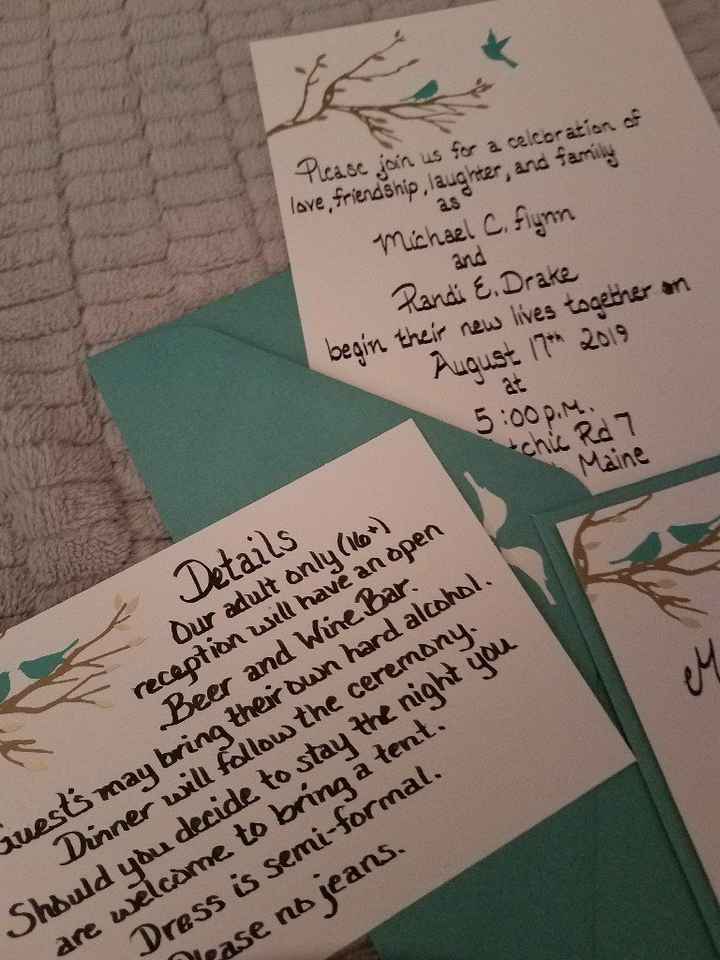 Please join us for a celebration of
love, friendship, laughter, and family
as
Michael C. flynn
and
Randi E. Drake
begin their new lives together on
August 17th 2019
at
5:00 p.m.
Rd 7
Maine
Details
Our adult only (16+)
reception will have an open
Beer and Wine Bar.
Guest's may bring their own hard alcohol.
Dinner will follow the ceremony.
Should you decide to stay the night you
are welcome to bring a tent.
Dress is semi-formal.
Please no jeans.